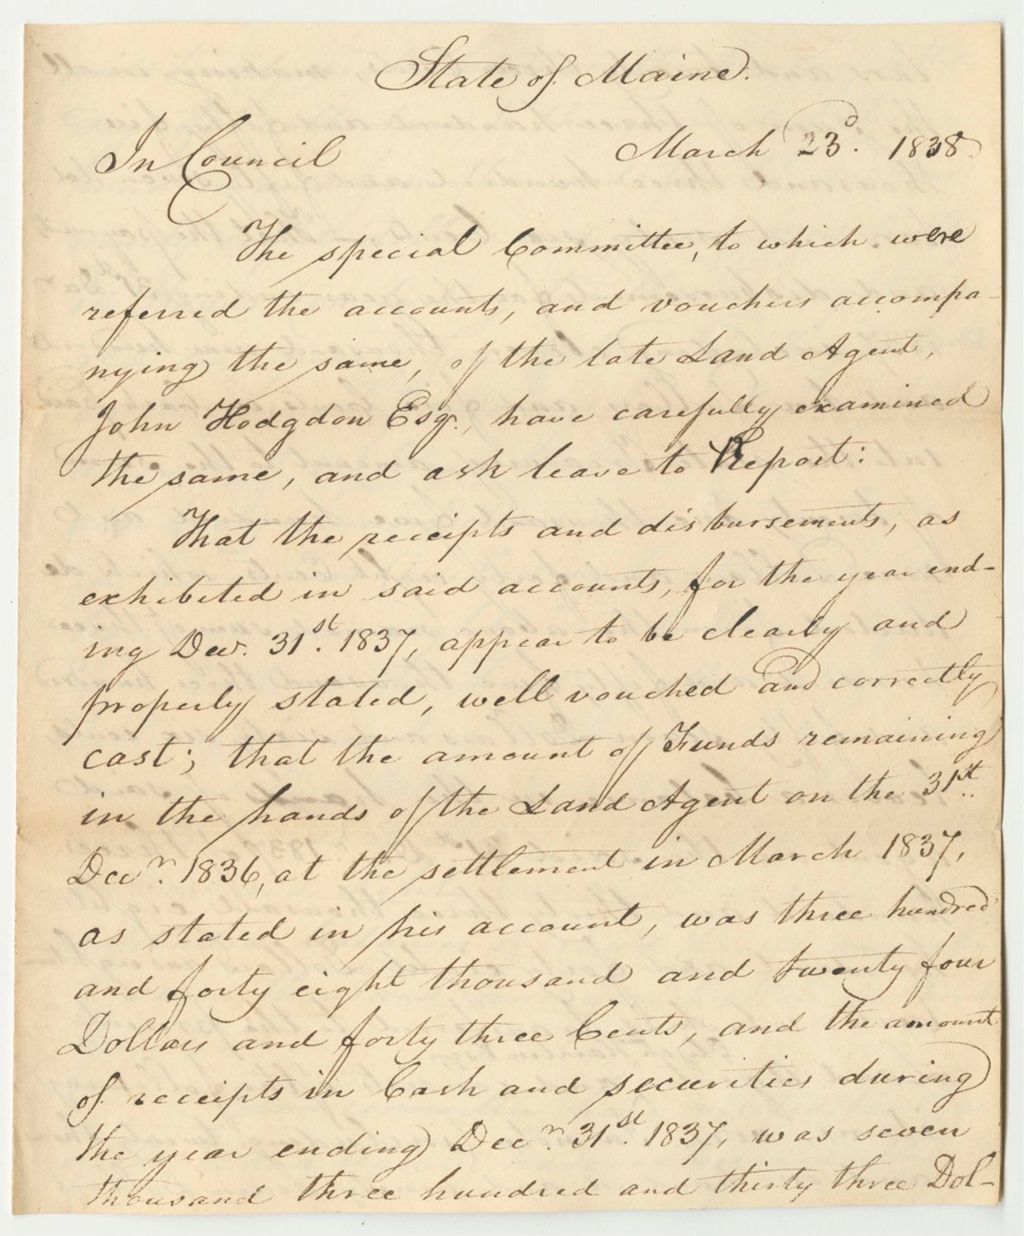 State of Maine.
In Council March 23d. 1838.
The special Committee, to which were
referred the accounts, and vouchers accompa-
nying the same, of the late Land Agent,
John Hodgdon Esq., have carefully examined
the same, and ask leave to Report:
That the receipts and disbursements, as
exhibited in said accounts, for the year end-
ing Dec. 31st. 1837, appear to be clearly and
properly stated, well vouched and correctly
cast; that the amount of Funds remaining
in the hands of the Land Agent on the 31st.
Decr. 1836, at the settlement in March 1837,
as stated in his account, was three hundred
and forty eight thousand and twenty four
Dollars and forty three Cents, and the amount
of receipts in Cash and securities during
the year ending Decr. 31st. 1837, was seven
thousand three hundred and thirty three Dol-